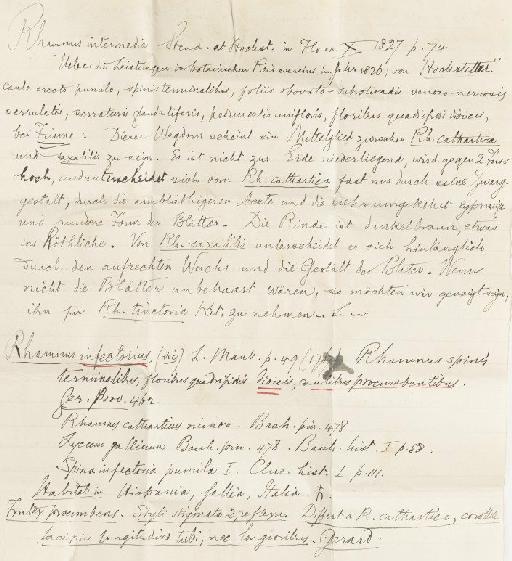 Rhamnus intermedia Steud. et Hochst. in Flora X 1827 p. 74
Ueber die Leistungen des botanischen Reisevereins im Jahr 1826, von "Hochstetter"
caule erecto pumilo, spinis terminalibus, foliis ovato- nervosis
serrulatis, serraturis glanduliferis, pedunculis unifloris, floribus quadrifidis dioicis,
bei Fiume. Dieser Wegdorn scheint ein Mittelglied zwischen Rh. cathartica
und saxatilis zu sein. Er ist nicht zur Erde niederliegend, wird gegen 2 Fuss
hoch, und unterscheidet sich von Rh. cathartica fast nur durch seine Zwerg-
gestalt, durch die Aeste und die
und rundere Form der Blätter. Die Rinde ist dunkelbraun, etwas
ins Röthliche. Von Rh. saxatilis unterscheidet er sich hinlänglich
durch den aufrechten Wuchs und die Gestalt der Blätter. Wenn
nicht die Blätter unbehaart wären, so möchten wir geneigt sein,
ihn für Rh. tinctoria Kit. zu nehmen.
Rhamnus infectorius, L. Mant. p. 49 Rhamnus spinis
terminalibus, floribus quadrifidis dioicis, caulibus procumbentibus.
Ger. Prov. 462
Rhamnus catharticus minor. Bauh. pin. 478
Lycium gallicum Bauh. pin. 478. Bauh. hist. I p. 58.
Spina infectoria pumila I. Clus. hist. I p. 111.
Habitat in Hispania, Gallia, Italia ♄.
Frutex procumbens. Styli stigmata 2, reflexa. Differt a R. cathartico, corollae
laciniis longitudine tubi, nec longioribus. Gerard.